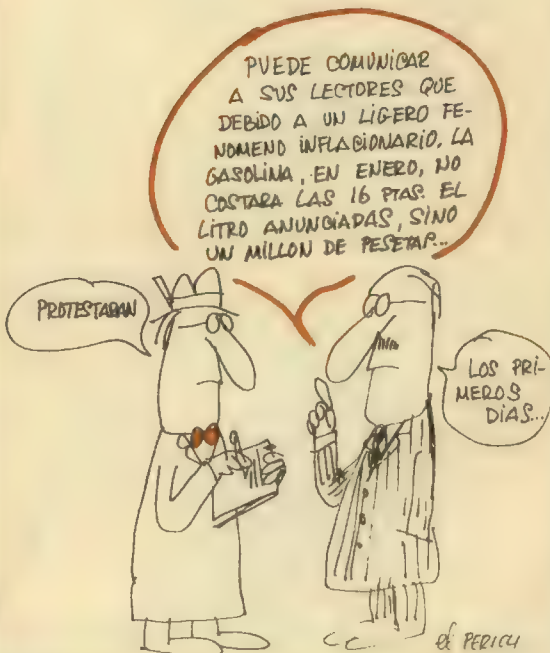 PUEDE COMUNICAR
A SUS LECTORES QUE
DEBIDO A UN LIGERO FE-
NOMENO INFLACIONARIO, LA
GASOLINA, EN ENERO, NO
COSTARA LAS 16 PTAS. EL
LITRO ANUNCIADAS, SINO
UN MILLON DE PESETAS...
PROTESTARAN
LOS PRI-
MEROS
DIAS...
el PERICH